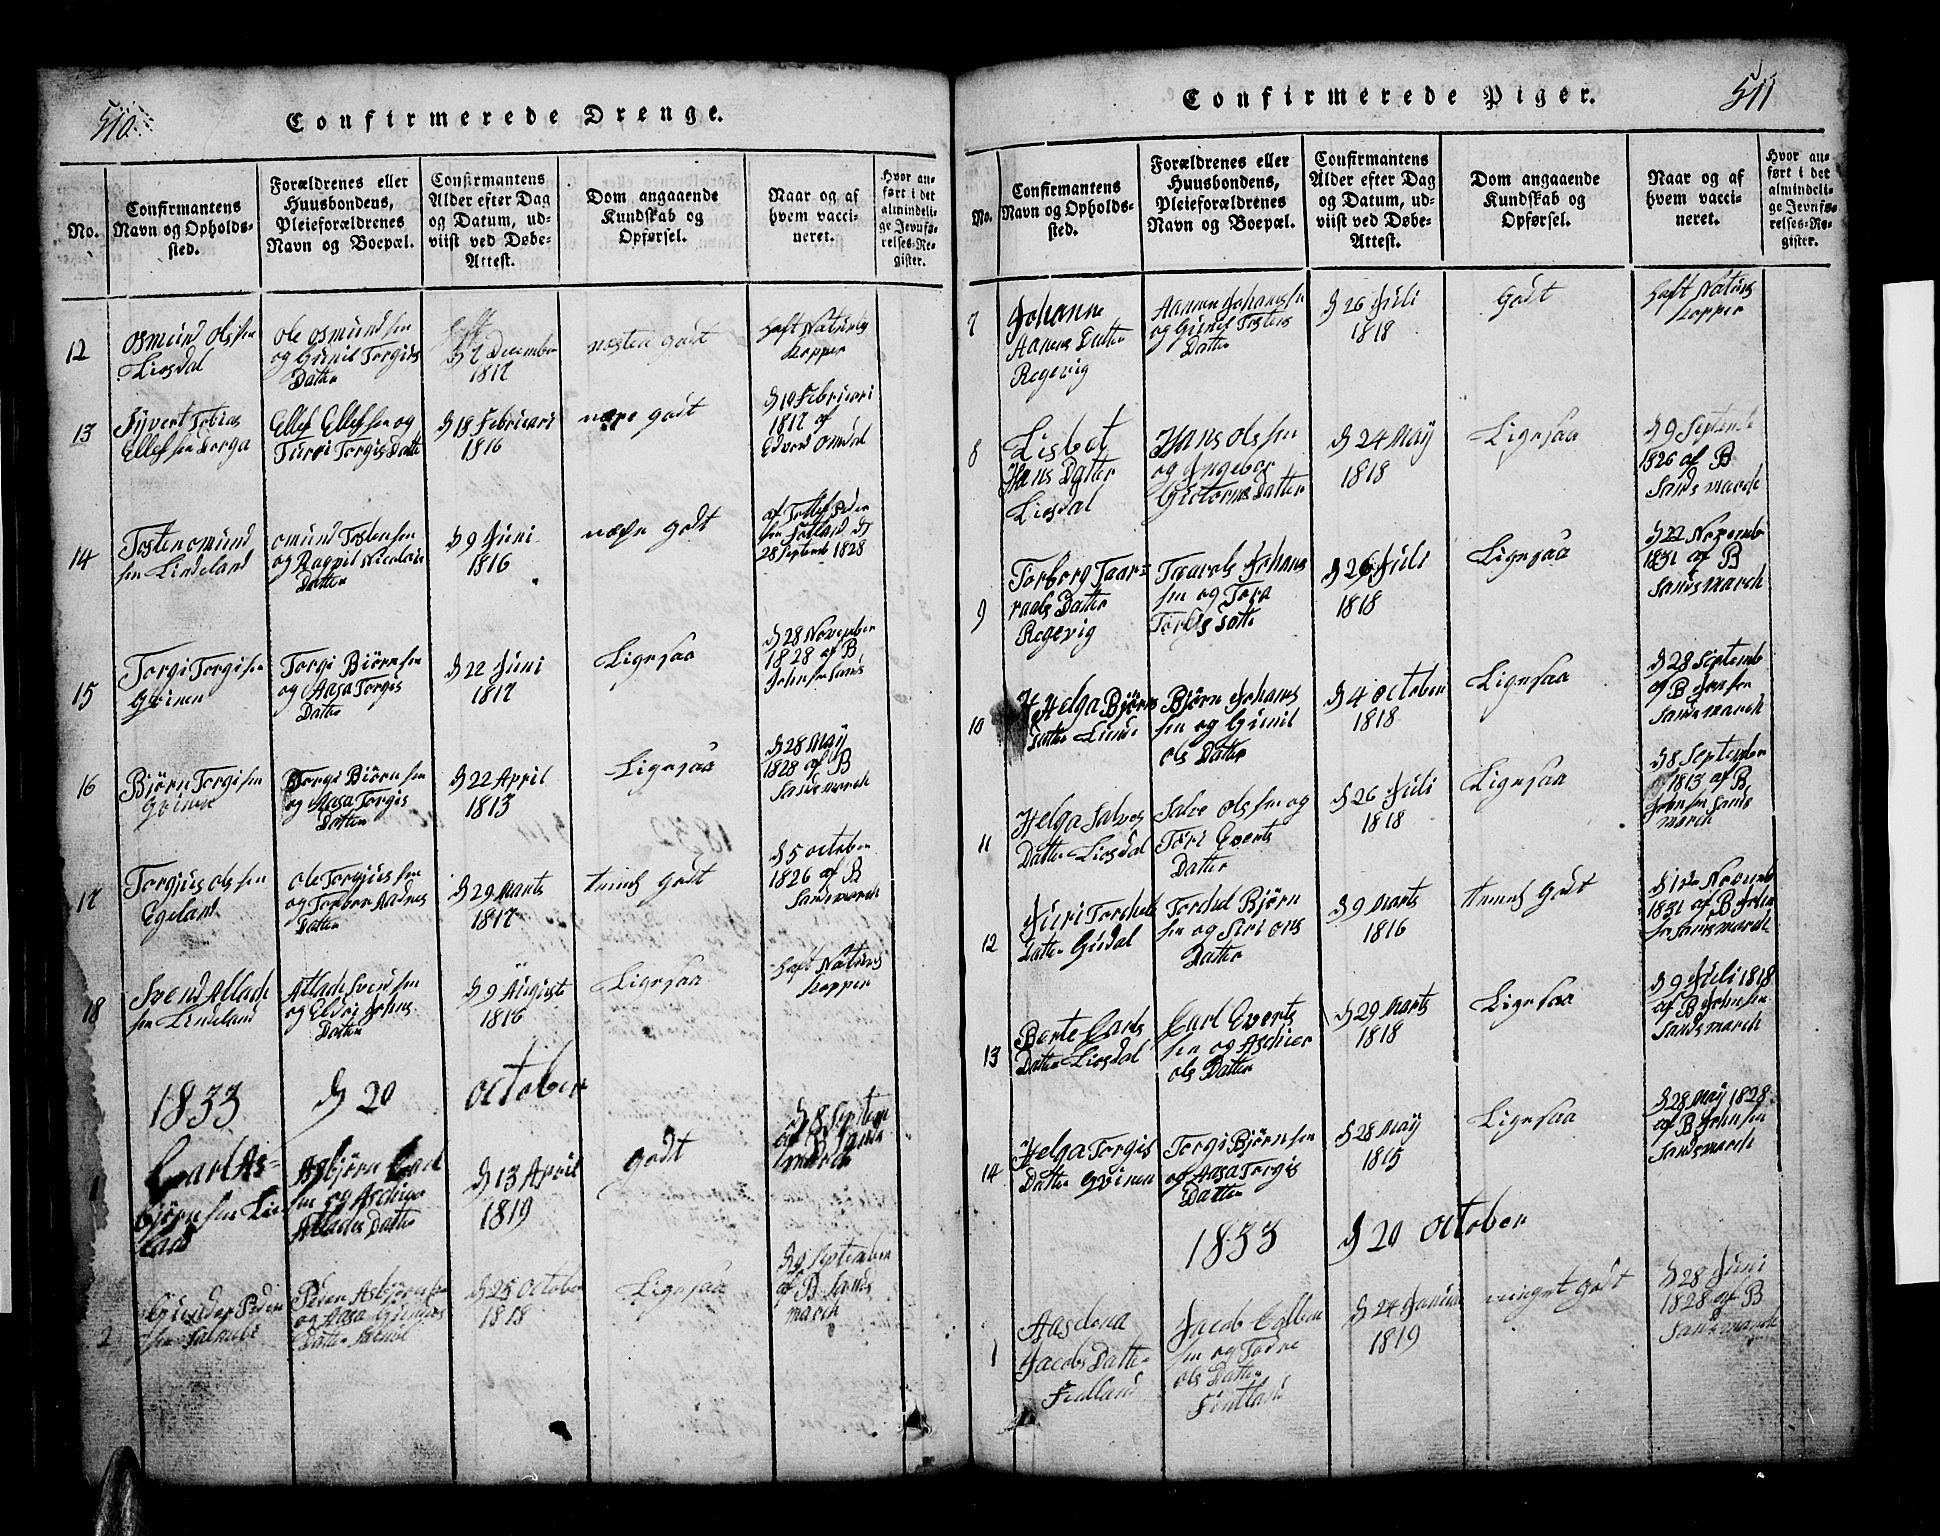 510.
Confirmerede Drenge.
No.
Confirmantens
Navn og Opholds-
sted.
Forældrenes eller
Huusbondens,
Pleieforældrenes
Navn og Boepæl.
Confirmantens
Alder efter Dag
og Datum, ud-
viist ved Døbe-
Attest.
Dom angaaende
Kundskab og
Opførsel.
Naar og af
hvem vacci-
neret.
Hvor an-
ført i det
almindeli-
ge Jevnfø-
relses-Re-
gister.
12
Osmund Olssen
Liosdal
Ole Osmundsen
og Gunil Torgis
Datter
d 7 December
1817
nesten godt
haft Naturlig
Kopper
13
Syvert Tobias
Ellefsen
Ellef Ellefsen og
Turri Torgis Datte
d 18 Februari
1816
godt
d 10 Februari
1817 af
Edvord Omdal
14
Tosten Omund
sen Lindeland
Omund Tostensen
og Ragnil Nicolais
Datter
d 9 Juni
1816
godt
af Tollef Peder
sen d
28 Septemb 1828
15
Torgi Torgisen
Gvinen
Torgi Biørnsen
og Aasa Torgis
Datte
d 22 Juni
1817
Ligesaa
d 28 November
1828 af B
Johnsen Sands
16
Bjørn Torgisen
Gvinen
Torgi Biørnsen
og Aasa Torgis
Datter
d 22 April
1813
Ligesaa
d 28 May
1828 af B
Sandsmarck
17
Torgjus Olssen
Egeland
Ole Torgjussen
og Torbor Aadnes
Datter
d 29 Marts
1817
godt
d 5 October
1826 af B
Sandsmarck
18
Svend Atlack
sen Lindeland
Atlack Svendsen
og Johns
Datter
d 9 August
1816
Ligesaa
haft Naturs
Kopper
1833 d 20 October
1
Carl As-
bjørnsen
land
Asbjørn Carl
sen og
Atlacks Datter
d 13 April
1819
godt
d 8 Septem
af B Sands
march
2
Gunder Peder
sen
Peder Asbjørnsen
og Aasa Gunders
Datter
d 25 October
1818
Ligesaa
d 9 September
af B Sands
march
511
Confirmerede Piger.
No.
Confirmantens
Navn og Opholds-
sted.
Forældrenes eller
Huusbondens,
Pleieforældrenes
Navn og Boepæl.
Confirmantens
Alder efter Dag
og Datum, ud-
viist ved Døbe-
Attest.
Dom angaaende
Kundskab og
Opførsel.
Naar og af
hvem vacci-
neret.
Hvor an-
ført i det
almindeli-
ge Jevnfø-
relses-Re-
gister.
7
Johanne
Aanens Datter
Regevig
Aanen Johanssen
og Gunil Tostens
Datter
d 26 Juli
1818
Godt
haft Naturs
Kopper
8
Lisbet
Hans Datter
Liosdal
Hans Olssen
og Ingebor
Guttorms Datter
d 24 May
1818
Ligesaa
d 9 Septembe
1826 af B
Sandsmarck
9
Torborg Taar-
vals Datter
Regevig
Taarvals Johans
sen og Tora
Datte
d 26 Juli
1818
Ligesaa
d 22 Novemb
1831 af B
Sandsmarck
10
Helga Bjørns
Datter Lunde
Bjørn Johans
sen og Gunil
Ols Datter
d 4 October
1818
Ligesaa
d 28 Septemb
af B Jonsen
Sandsmarch
11
Helga Salves
Datter Liosdal
Salve Olssen og
Tori Everts
Datter
d 26 Juli
1818
Ligesaa
d 8 September
1813 af B
Johnsen Sands
march
12
Juri Torkels
Datter Gudal
Torkel Bjørn
sen og Siri Ors
Datter
d 9 Marts
1816
Godt
d 12 Novemb
1831 af B John
sen Sandsmarck
13
Berte Carls
Datter Liosdal
Carl Everts
sen og
Ols Datter
d 29 Marts
1818
Ligesaa
d 9 Juli 1818
af B Johnsen
Sandsmarch
14
Helga Torgis
Datter Gvinen
Torgi Bjørnsen
og Aasa Torgis
Datter
d 28 May
1815
Ligesaa
d 28 May 1828
af B Johnsen
Sandsmarch
1833 d 20 October
1
Aasdena
Jacobs Datter
Jacob
sen og Todne
Ols Datter
d 24 Januar
1819
meeget godt
d 28 Juni
1828 af B
Sandsmarck